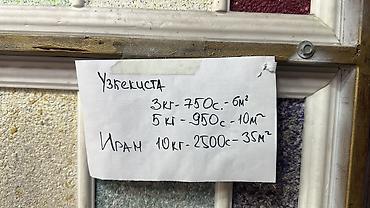 Узбекиста
3кг-750с.-6м²
5кг-950с-10м²
Иран 10кг-2500с-35м²